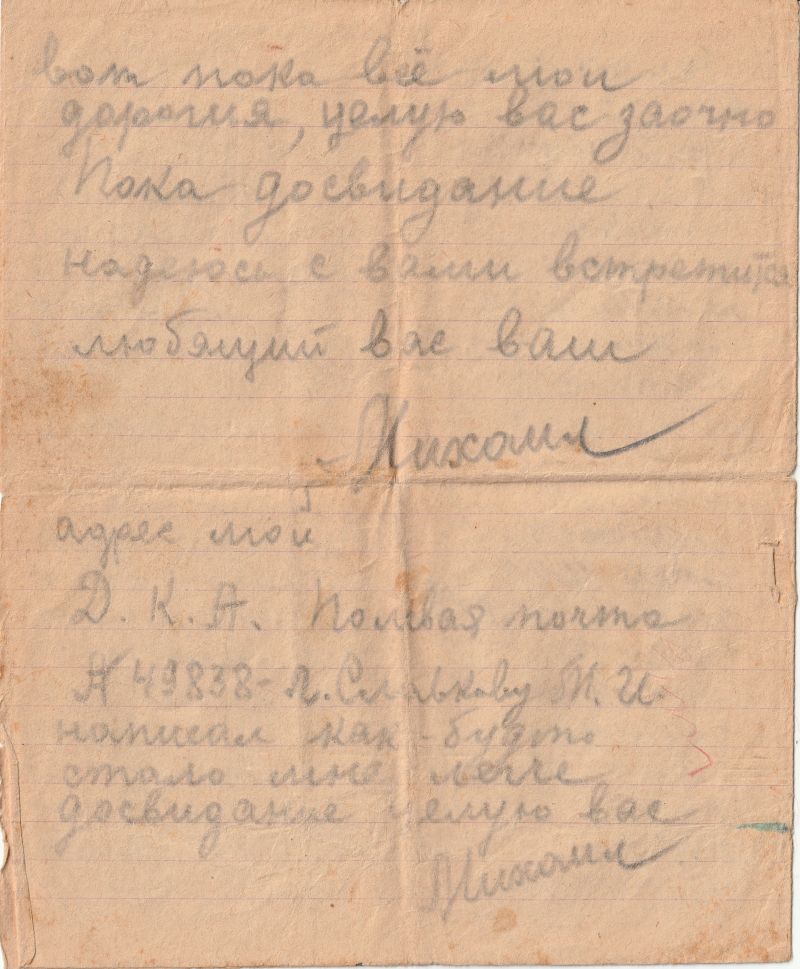 вот пока всё мои
дорогия, целую вас заочно
Пока досвидание
надеюсь с вами встретится
любящий вас ваш
Михаил
адрес мой
Д. К. А. Полевая почта
№ 49838-Л. Славкову М. И.
написал как-будто
стало мне легче
досвидание целую вас
Михаил